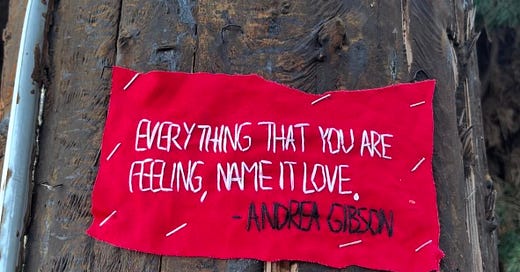 EVERYTHING THAT YOU ARE
FEELING, NAME IT LOVE.
- ANDREA GIBSON